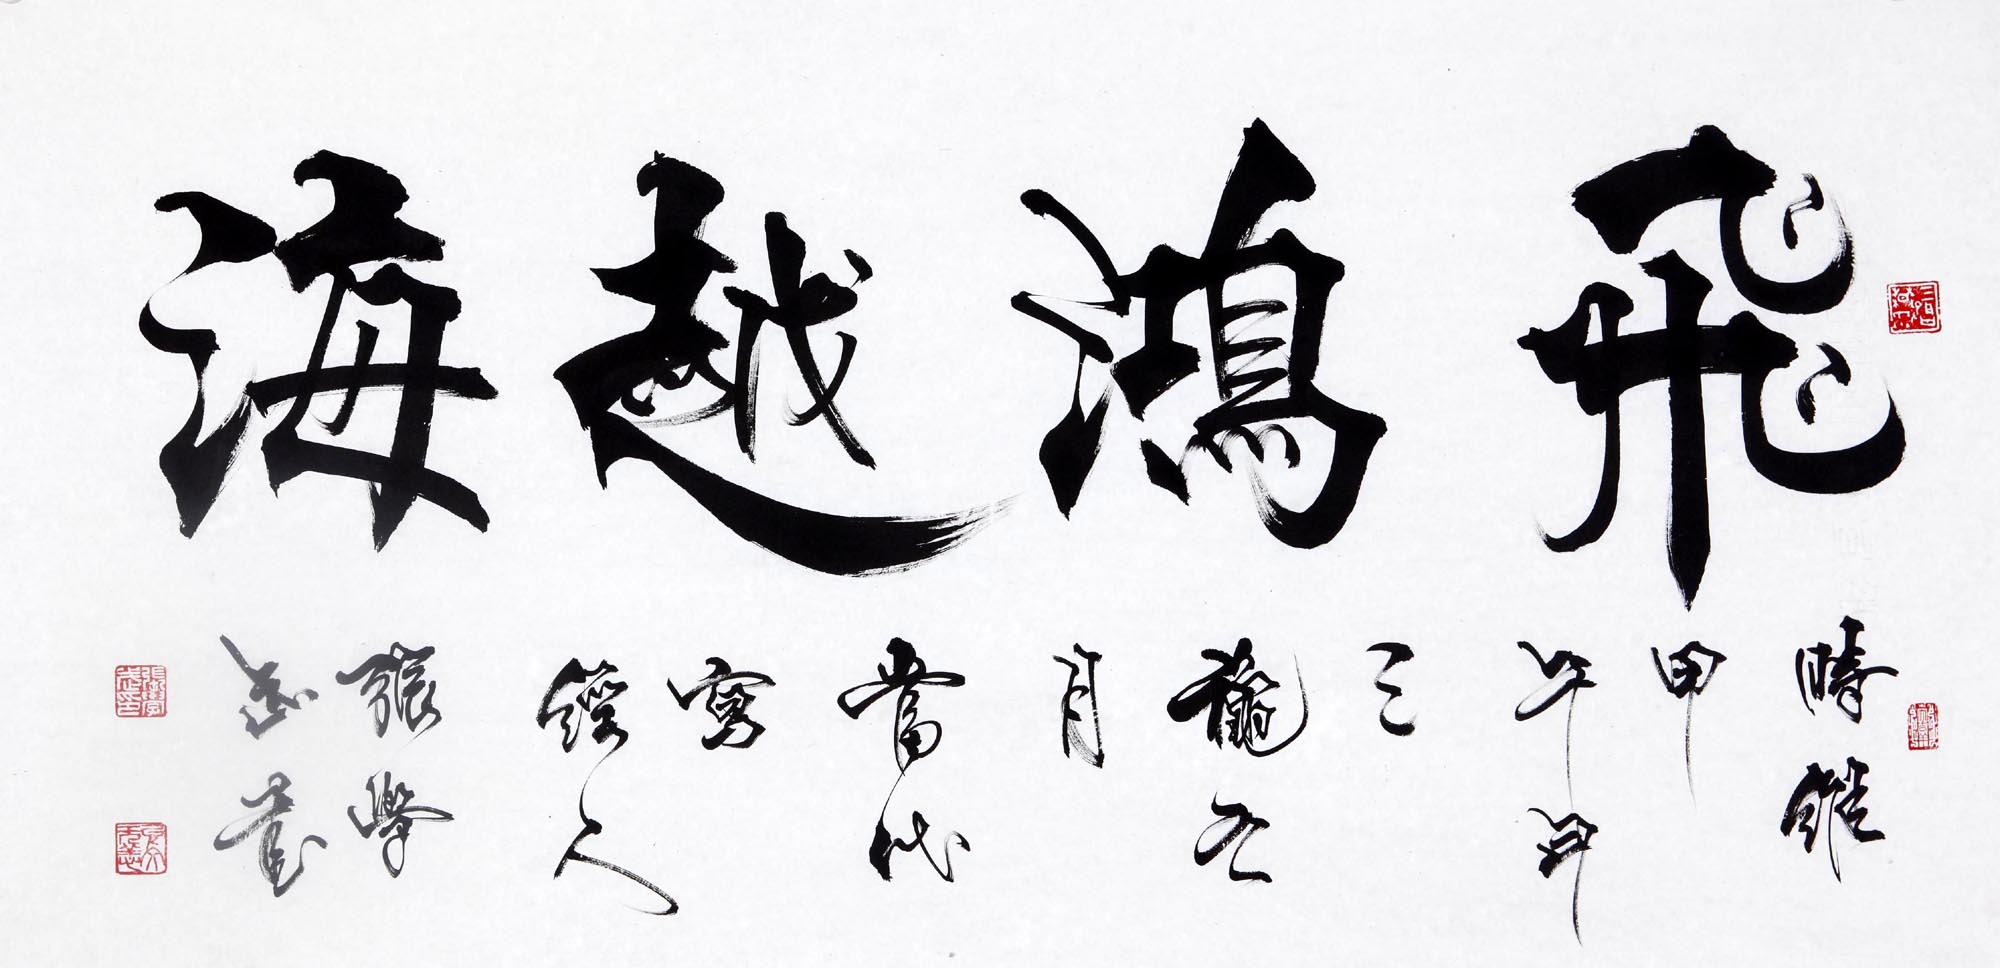 飛鴻越海
時維
甲
午年
之
龝九
月
當代
寫
經人
張學
武書